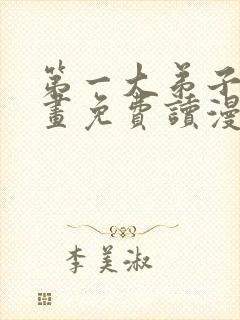 第一大弟子漫
畫免費讀漫
李美淑